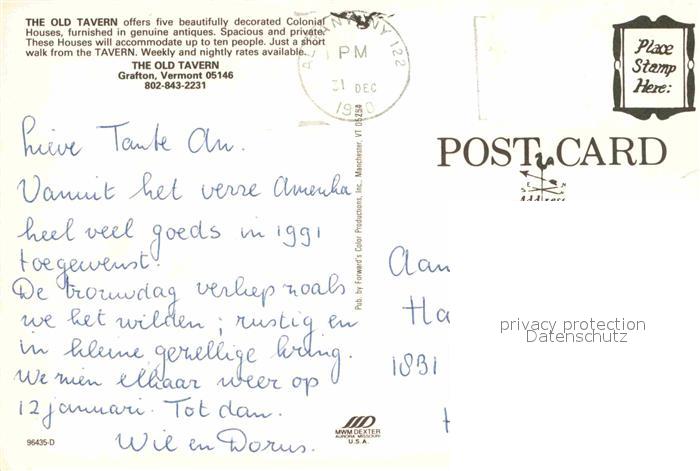 THE OLD TAVERN offers five beautifully decorated Colonial
Houses, furnished in genuine antiques. Spacious and private.
These Houses will accommodate up to ten people. Just a short
walk from the TAVERN. Weekly and nightly rates available.
THE OLD TAVERN
Grafton, Vermont 05146
802-843-2231
ALBANY NY 122
PM
31 DEC
1990
Place
Stamp
Here:
POST CARD
Address
Lieve Tante An.
Vanuit het verre Amerika
heel veel goeds in 1991
toegewenst.
De trouwdag verliep zoals
we het wilden; rustig en
in kleine gezellige kring.
We zien elkaar weer op
12 januari. Tot dan.
Wil en Dorus.
Pub. by Forward's Color Productions, Inc., Manchester, VT 05254
Aan
Ha
1831
privacy protection
Datenschutz
96435-D
MWM DEXTER
AURORA, MISSOURI
U.S.A.